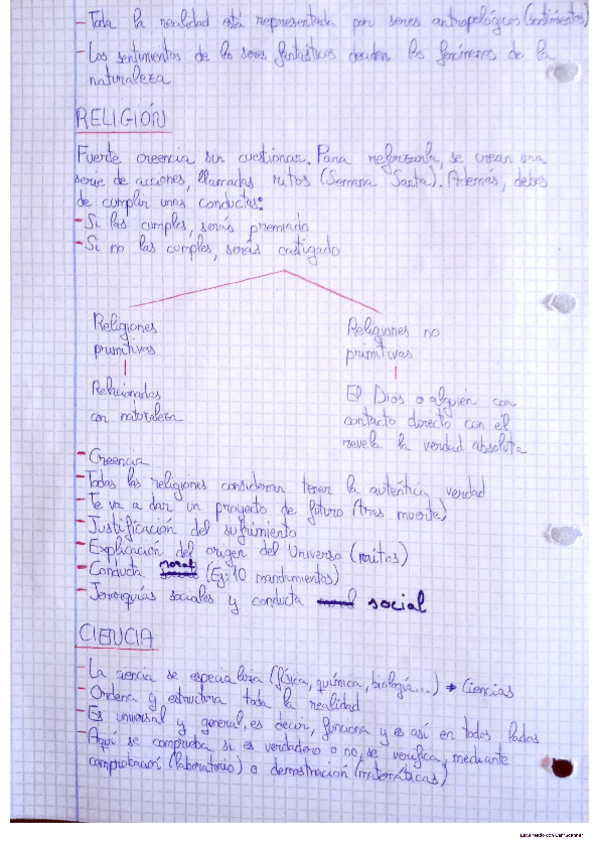 - Toda la realidad está representada por seres antropológicos (sentimientos)
- Los sentimientos de los seres fantásticos deciden los fenómenos de la
naturaleza
RELIGIÓN
Fuerte creencia sin cuestionar. Para reforzarla, se crean una
serie de acciones, llamadas ritos (Semana Santa). Además, debes
de cumplir unas conductas:
- Si las cumples, serás premiado
- Si no las cumples, serás castigado
Religiones
primitivas
Relacionadas
con naturaleza
Religiones no
primitivas
El Dios o alguien con
contacto directo con el
revela la verdad absoluta
- Creencia
- Todas las religiones consideran tener la auténtica verdad
- Te va a dar un proyecto de futuro (tras muerte)
- Justificación del sufrimiento
- Explicación del origen del Universo (mitos)
- Conducta moral (Ej: 10 mandamientos)
- Jerarquías sociales y conducta social
CIENCIA
- La ciencia se especializa (física, química, biología...) → Ciencias
- Ordena y estructura toda la realidad
- Es universal y general, es decir, funciona y es así en todos lados
- Aquí se comprueba si es verdadero o no, se verifica, mediante
comprobación (laboratorio) o demostración (matemáticas)
Escaneado con CamScanner